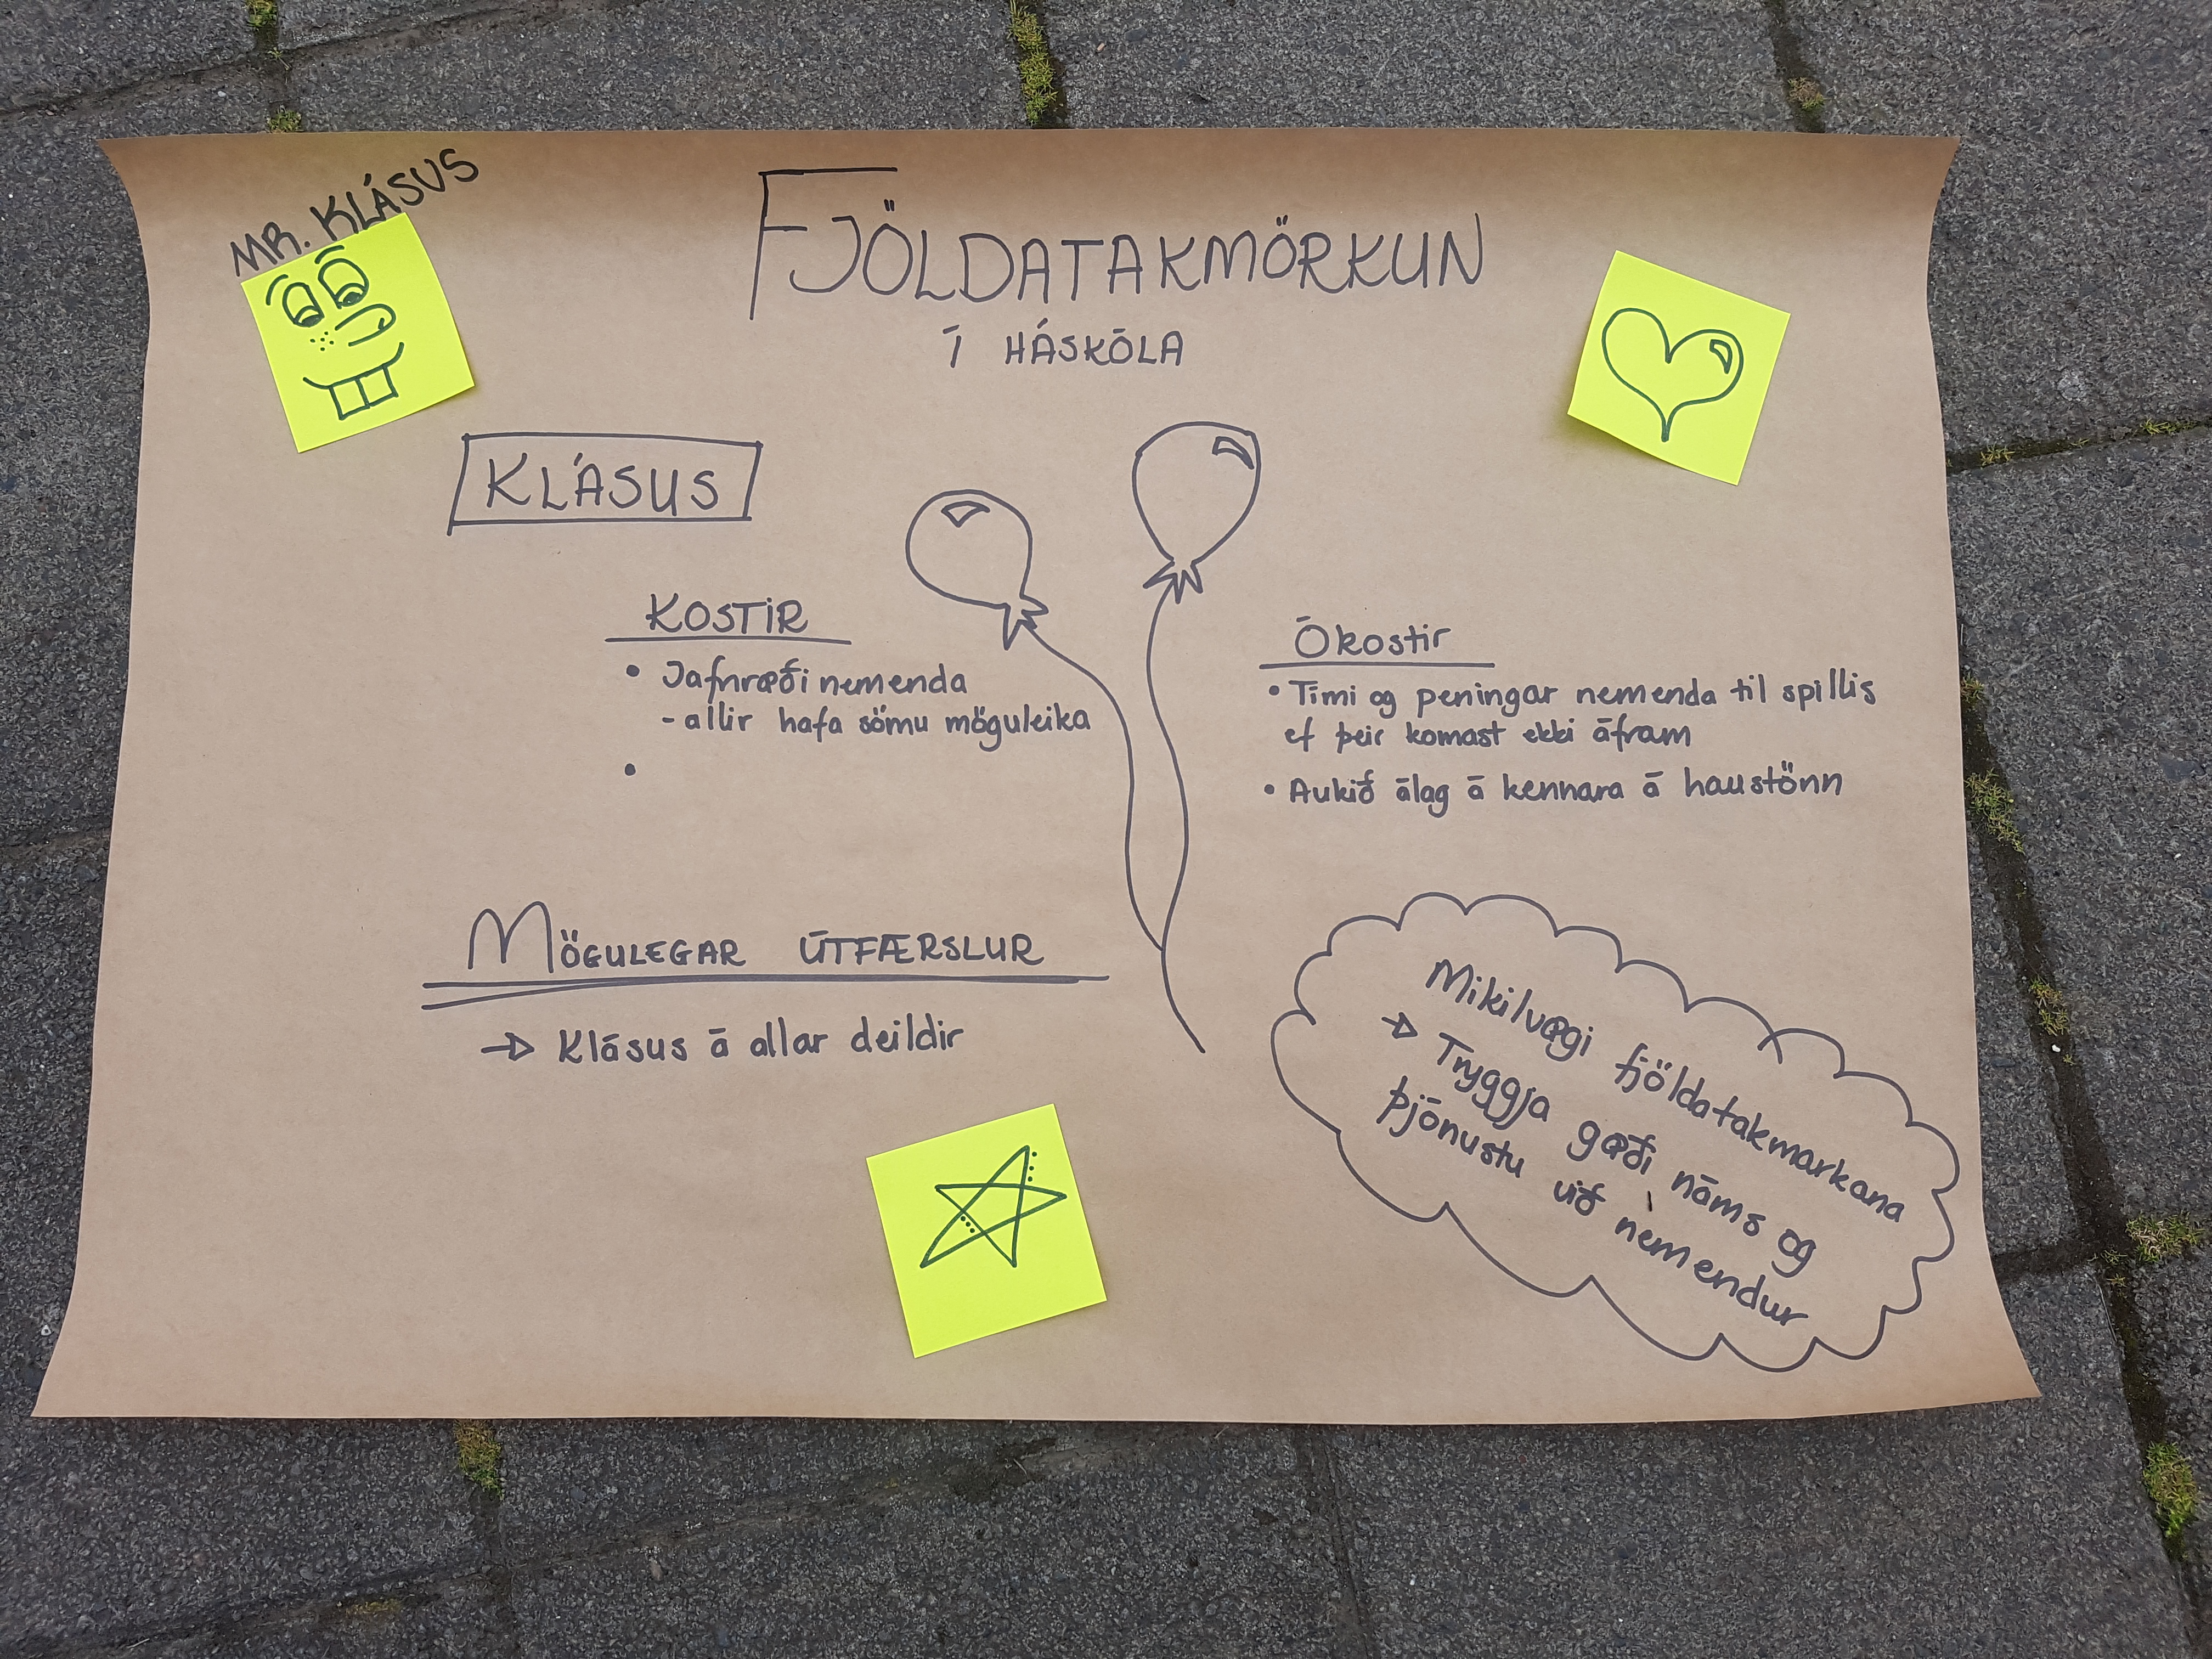 MR. KLÁSUS
FJÖLDATAKMÖRKUN
Í HÁSKÓLA
KLÁSUS
KOSTIR
• Jafnræði nemenda
- allir hafa sömu möguleika
•
Ókostir
• Tími og peningar nemenda til spillis
ef þeir komast ekki áfram
• Aukið álag á kennara á haustönn
MÖGULEGAR ÚTFÆRSLUR
→ Klásus á allar deildir
Mikilvægi fjöldatakmarkana
→ Tryggja gæði náms og
þjónustu við nemendur